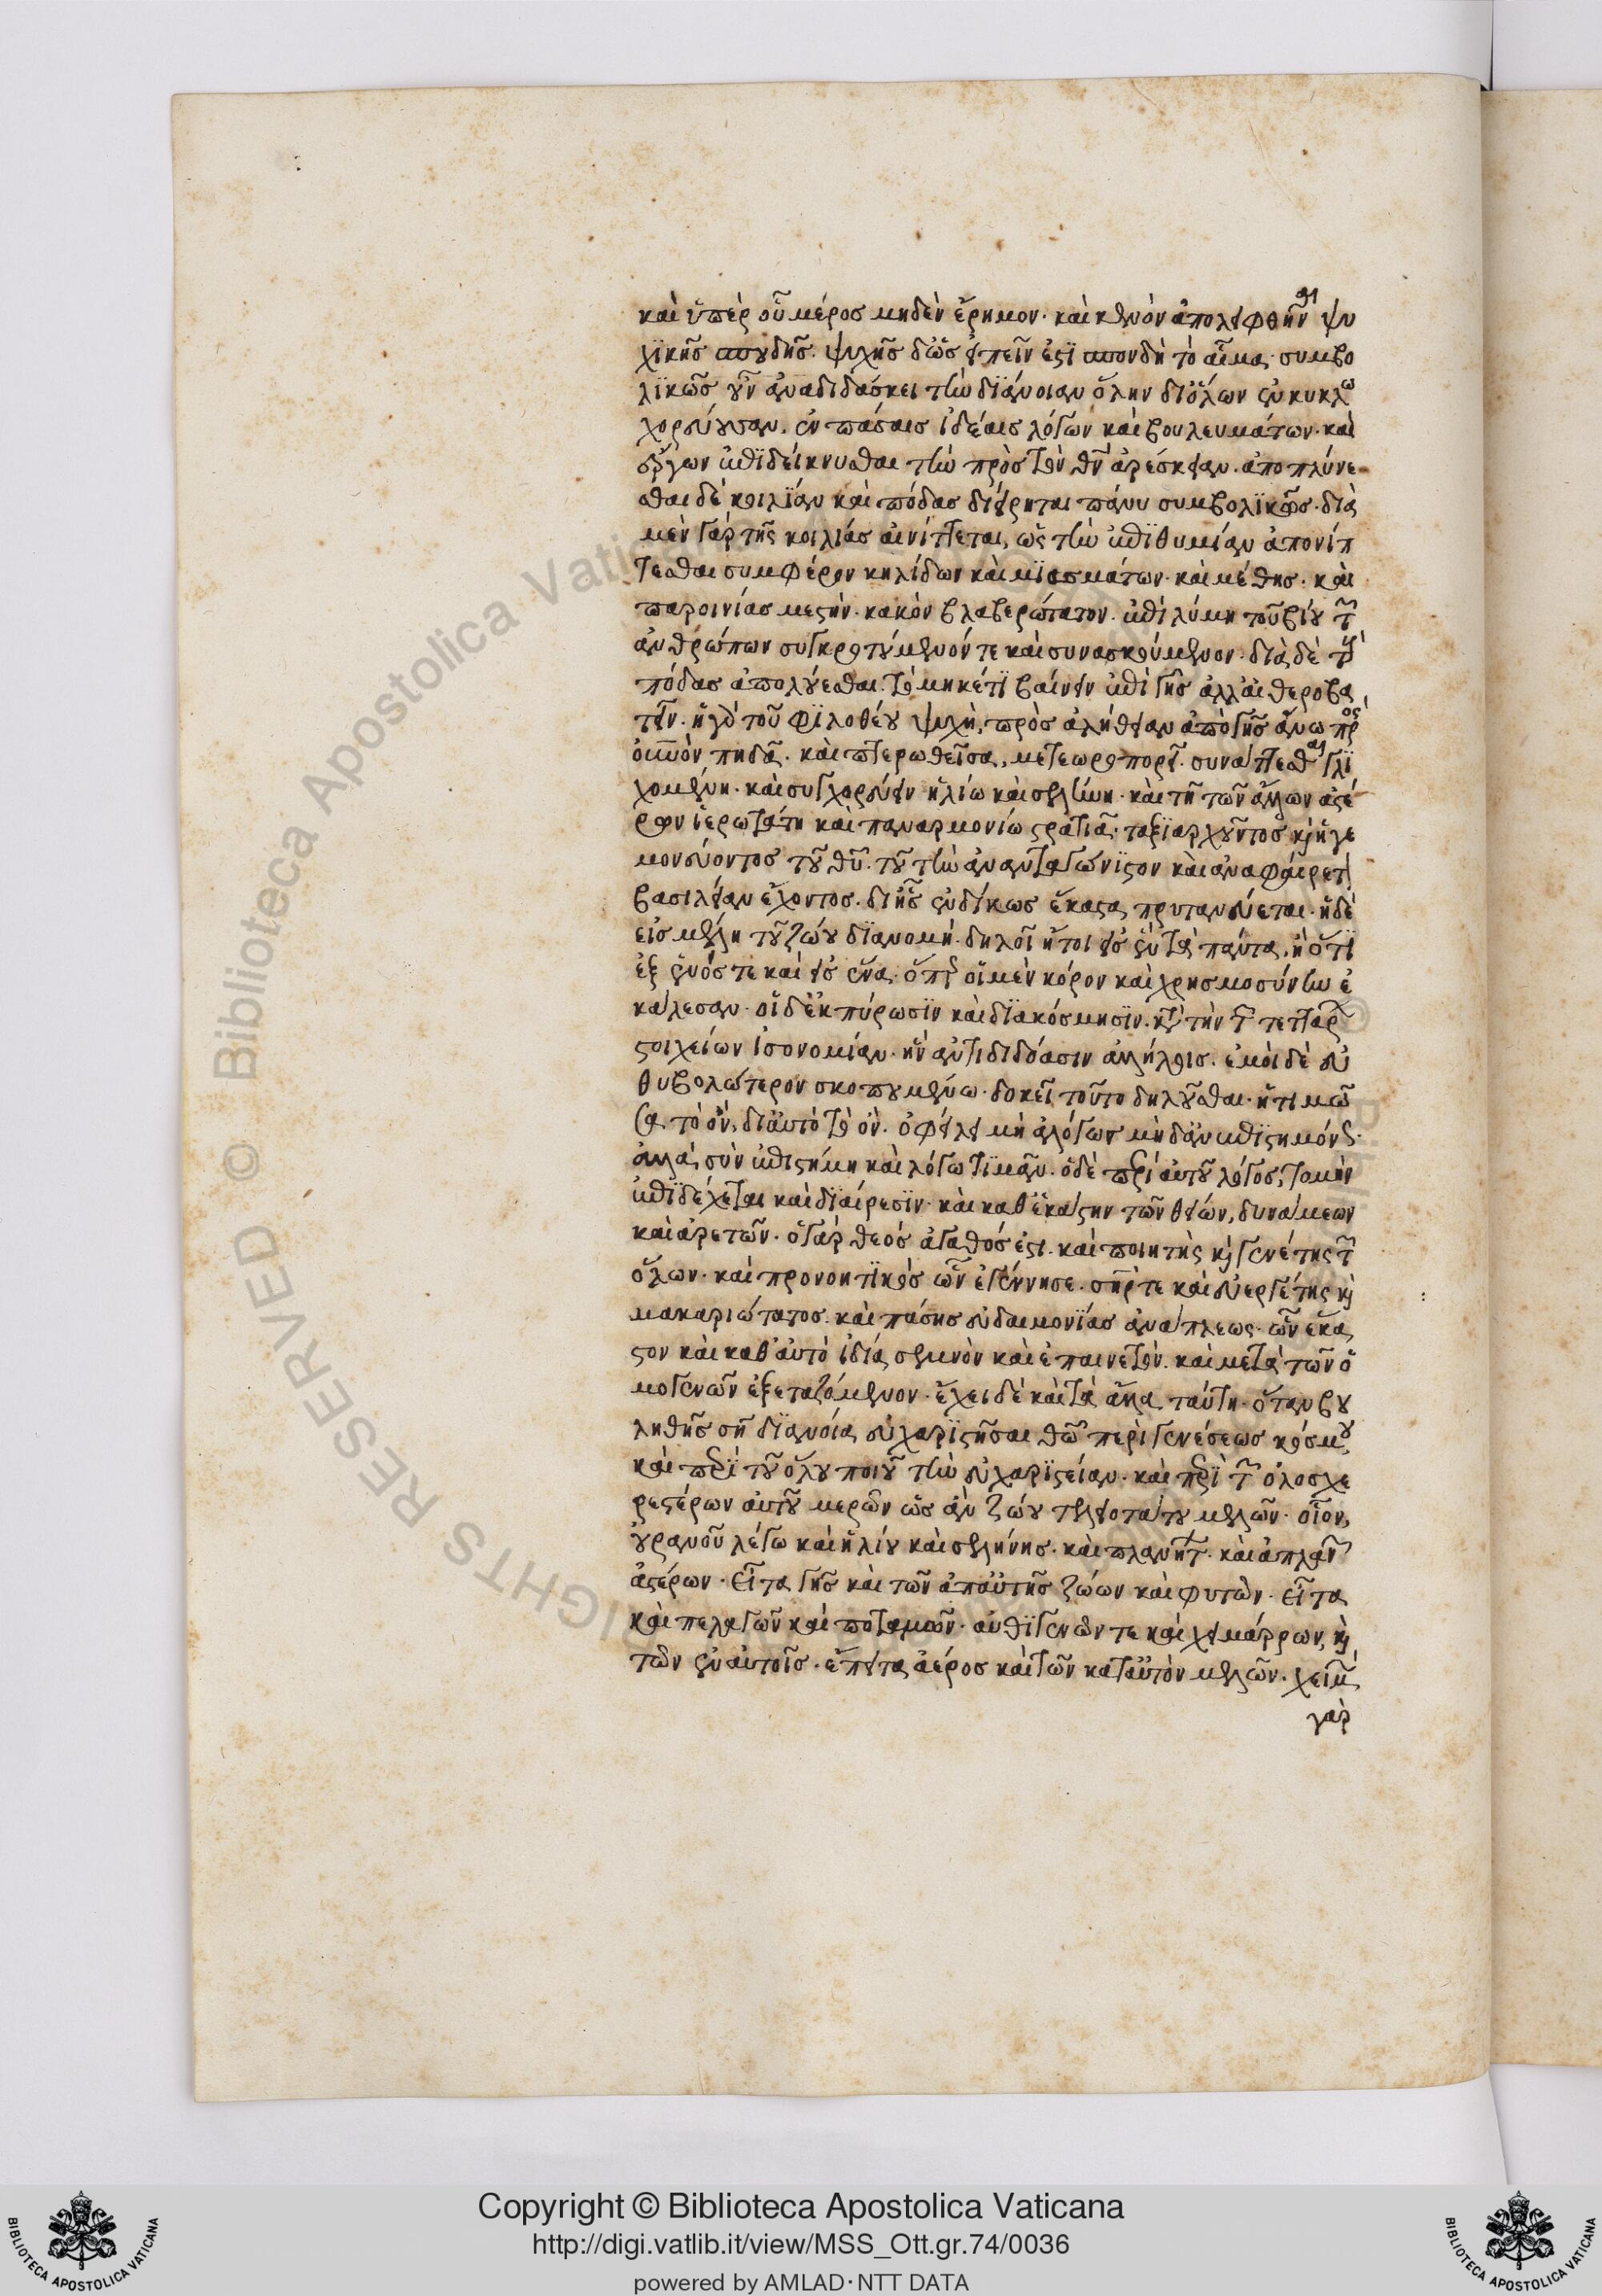 καὶ ὑπὲρ οὗ μέρος μηδὲν ἔρημον· καὶ κενὸν ἀπολειφθῆναι ψυ
χϊκῆς σπουδῆς. ψυχῆς δ' ὡς εἰπεῖν ἐστὶ σπονδὴ τὸ αἷμα· συμβο
λϊκῶς οὖν ἀναδιδάσκει τὴν διάνοιαν ὅλην δι' ὅλων ἐν κύκλω
χορεύουσαν. ἐν πάσαις ἰδέαις λόγων καὶ βουλευμάτων· καὶ
ἔργων ἐπιδείκνυσθαι τὴν πρὸς τὸν θῦ ἀρέσκειαν. ἀποπλύνε
σθαι δὲ κοιλίαν καὶ πόδας διείρηται πάνυ συμβολϊκῶς· διὰ
μὲν γὰρ τῆς κοιλίας αἰνίττεται, ὡς τὴν ἐπιθυμίαν ἀπονίπ
τεσθαι συμφέρον κηλίδων καὶ μϊασμάτων· καὶ μέθης· καὶ
παροινίας μεστὴν· κακὸν βλαβερώτατον. ἐπὶ λύμη τοῦ βίου τῶν
ἀνθρώπων συγκροτούμενόν τε καὶ συνασκούμενον· διὰ δὲ τοῦ
πόδας ἀπολούεσθαι. τὸ μηκέτι βαίνειν ἐπὶ γῆς ἀλλ' αἰθεροβα
τεῖν. ἡ γὰρ τοῦ φϊλοθέου ψυχὴ, πρὸς ἀλήθειαν ἀπὸ γῆς ἄνω πρὸς
οὐνὸν πηδᾶ. καὶ πτερωθεῖσα, μετεωροπορεῖ. συνατάττεσθαι γλϊ
χομένη. καὶ συγχορεύειν ἡλίω καὶ σελήνη· καὶ τῆ τῶν ἄλλων ἀστέ
ρων ἱερωτάτη καὶ παναρμονίω στρατιᾶ. ταξϊαρχοῦντος καὶ ἡγε
μονεύοντος τοῦ θῦ. τοῦ τὴν ἀνανταγώνϊστον καὶ ἀναφαίρετον
βασιλείαν ἔχοντος. δι' ἧς ἐνδίκως ἕκαστα πρυτανεύεται. ἡ δὲ
εἰς μέλη τοῦ ζώου δϊανομὴ. δηλοῖ ἤτοι ὡς ἓν τὰ πάντα, ἢ ὅτϊ
ἐξ ἑνός τε καὶ εἰς ἕνα. ὅπερ οἱ μὲν κόρον καὶ χρησμοσύνην ἐ
κάλεσαν· οἱ δ' ἐκπύρωσϊν καὶ δϊακόσμησϊν. κατὰ τὴν τῶν τεττάρων
στοιχείων ἰσονομίαν· ἣν ἀντιδιδόασιν ἀλλήλοις. ἐμοὶ δὲ εὐ
θυβολώτερον σκοπουμένω· δοκεῖ τοῦτο δηλοῦσθαι· ἡ τιμῶ
σα τὸ ὂν, δι' αὐτὸ τὸ ὂν. ὀφείλει μὴ ἀλόγως μηδ' ἀνεπϊστημόνως.
ἀλλὰ, σὺν ἐπιστήμη καὶ λόγω τϊμᾶν. ὁ δὲ περὶ αὐτοῦ λόγος, τομὴν
ἐπϊδέχεται καὶ δϊαίρεσϊν· καὶ καθ' ἑκάστην τῶν θείων, δυνάμεων
καὶ ἀρετῶν. ὁ γὰρ θεός ἀγαθός ἐστι. καὶ ποιητὴς καὶ γενέτης τῶν
ὅλων. καὶ προνοητϊκὸς ὧν ἐγέννησε. σωτήρ τε καὶ εὐεργέτης καὶ
μακαριότατος. καὶ πάσης εὐδαιμονϊάς ἀνάπλεως. ὧν ἕκα
στον καὶ καθ' αὐτὸ ἰδία σεμνὸν καὶ ἐπαινετὸν. καὶ μετὰ τῶν ὁ
μογενῶν ἐξεταζόμενον. ἔχει δὲ καὶ τὰ ἄλλα ταύτη. ὅταν βου
ληθῆς σῆ δϊανοία εὐχαρϊστῆσαι θῶ περὶ γενέσεως κόσμου
καὶ περϊ τοῦ ὅλου ποιοῦ τὴν εὐχαρϊστείαν. καὶ περϊ τῶν ὁλοσχε
ρεστέρων αὐτοῦ μερῶν ὡς ἂν ζώου τελειοτάτου μελῶν. οἷον,
οὐρανοῦ λέγω καὶ ἡλίου καὶ σελήνης. καὶ πλανήτων. καὶ ἀπλανῶν
ἀστέρων. εἶτα γῆς καὶ τῶν ἀπ' αὐτῆς ζώων καὶ φυτῶν. εἶτα
καὶ πελαγῶν καὶ ποταμῶν. αὐθϊγενῶν τε καὶ χειμάρρων, καὶ
τῶν ἐν αὐτοῖς. ἔπειτα ἀέρος καὶ τῶν κατ' αὐτὸν μελῶν. χειμὼν
γὰρ
Copyright © Biblioteca Apostolica Vaticana
http://digi.vatlib.it/view/MSS_Ott.gr.74/0036
powered by AMLAD·NTT DATA